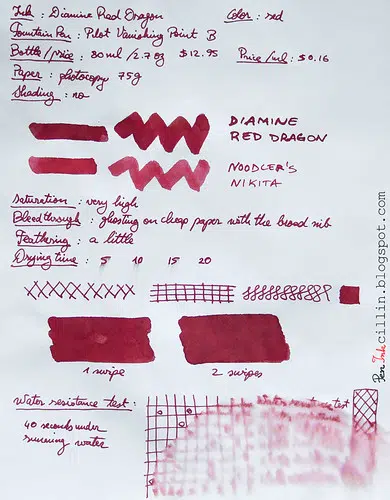 Ink : Diamine Red Dragon Color : red
Fountain Pen : Pilot Vanishing Point B
Bottle/price : 80ml/2.7 oz $12.95 Price/ml : $0.16
Paper : photocopy 75g
Shading : no
DIAMINE
RED DRAGON
NOODLER'S
NIKITA
Saturation : very high
Bleedthrough : ghosting on cheap paper with the broad nib
Feathering : a little
Drying time : 5 10 15 20
1 swipe 2 swipes
Water resistance test : Water resistance test
40 seconds under
running water
Pen Ink cillin.blogspot.com